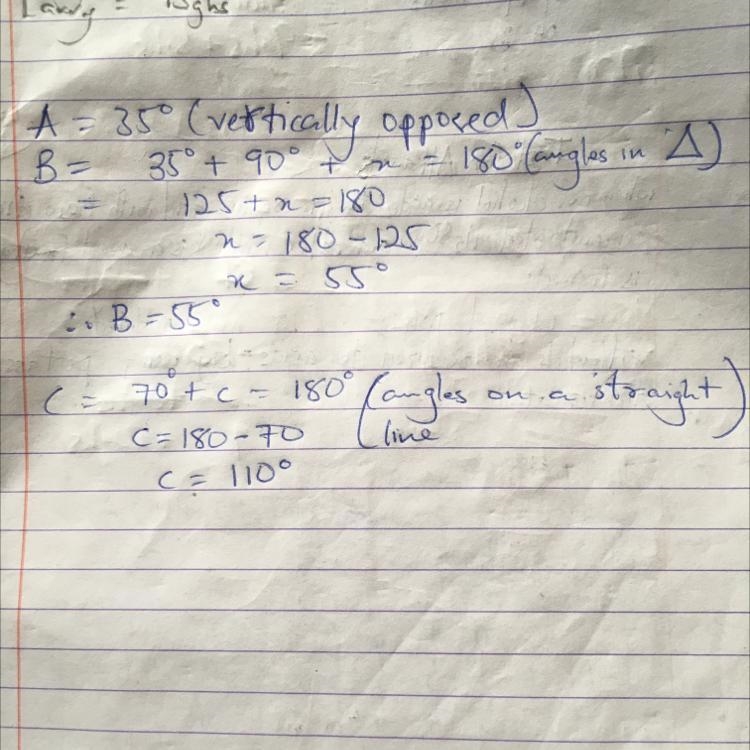 A = 35° (vertically opposed)
B = 35° + 90° + x = 180° (angles in Δ)
= 125 + x = 180
x = 180 - 125
x = 55°
∴ B = 55°
C = 70° + c = 180° (angles on a straight
C = 180 - 70 line)
C = 110°